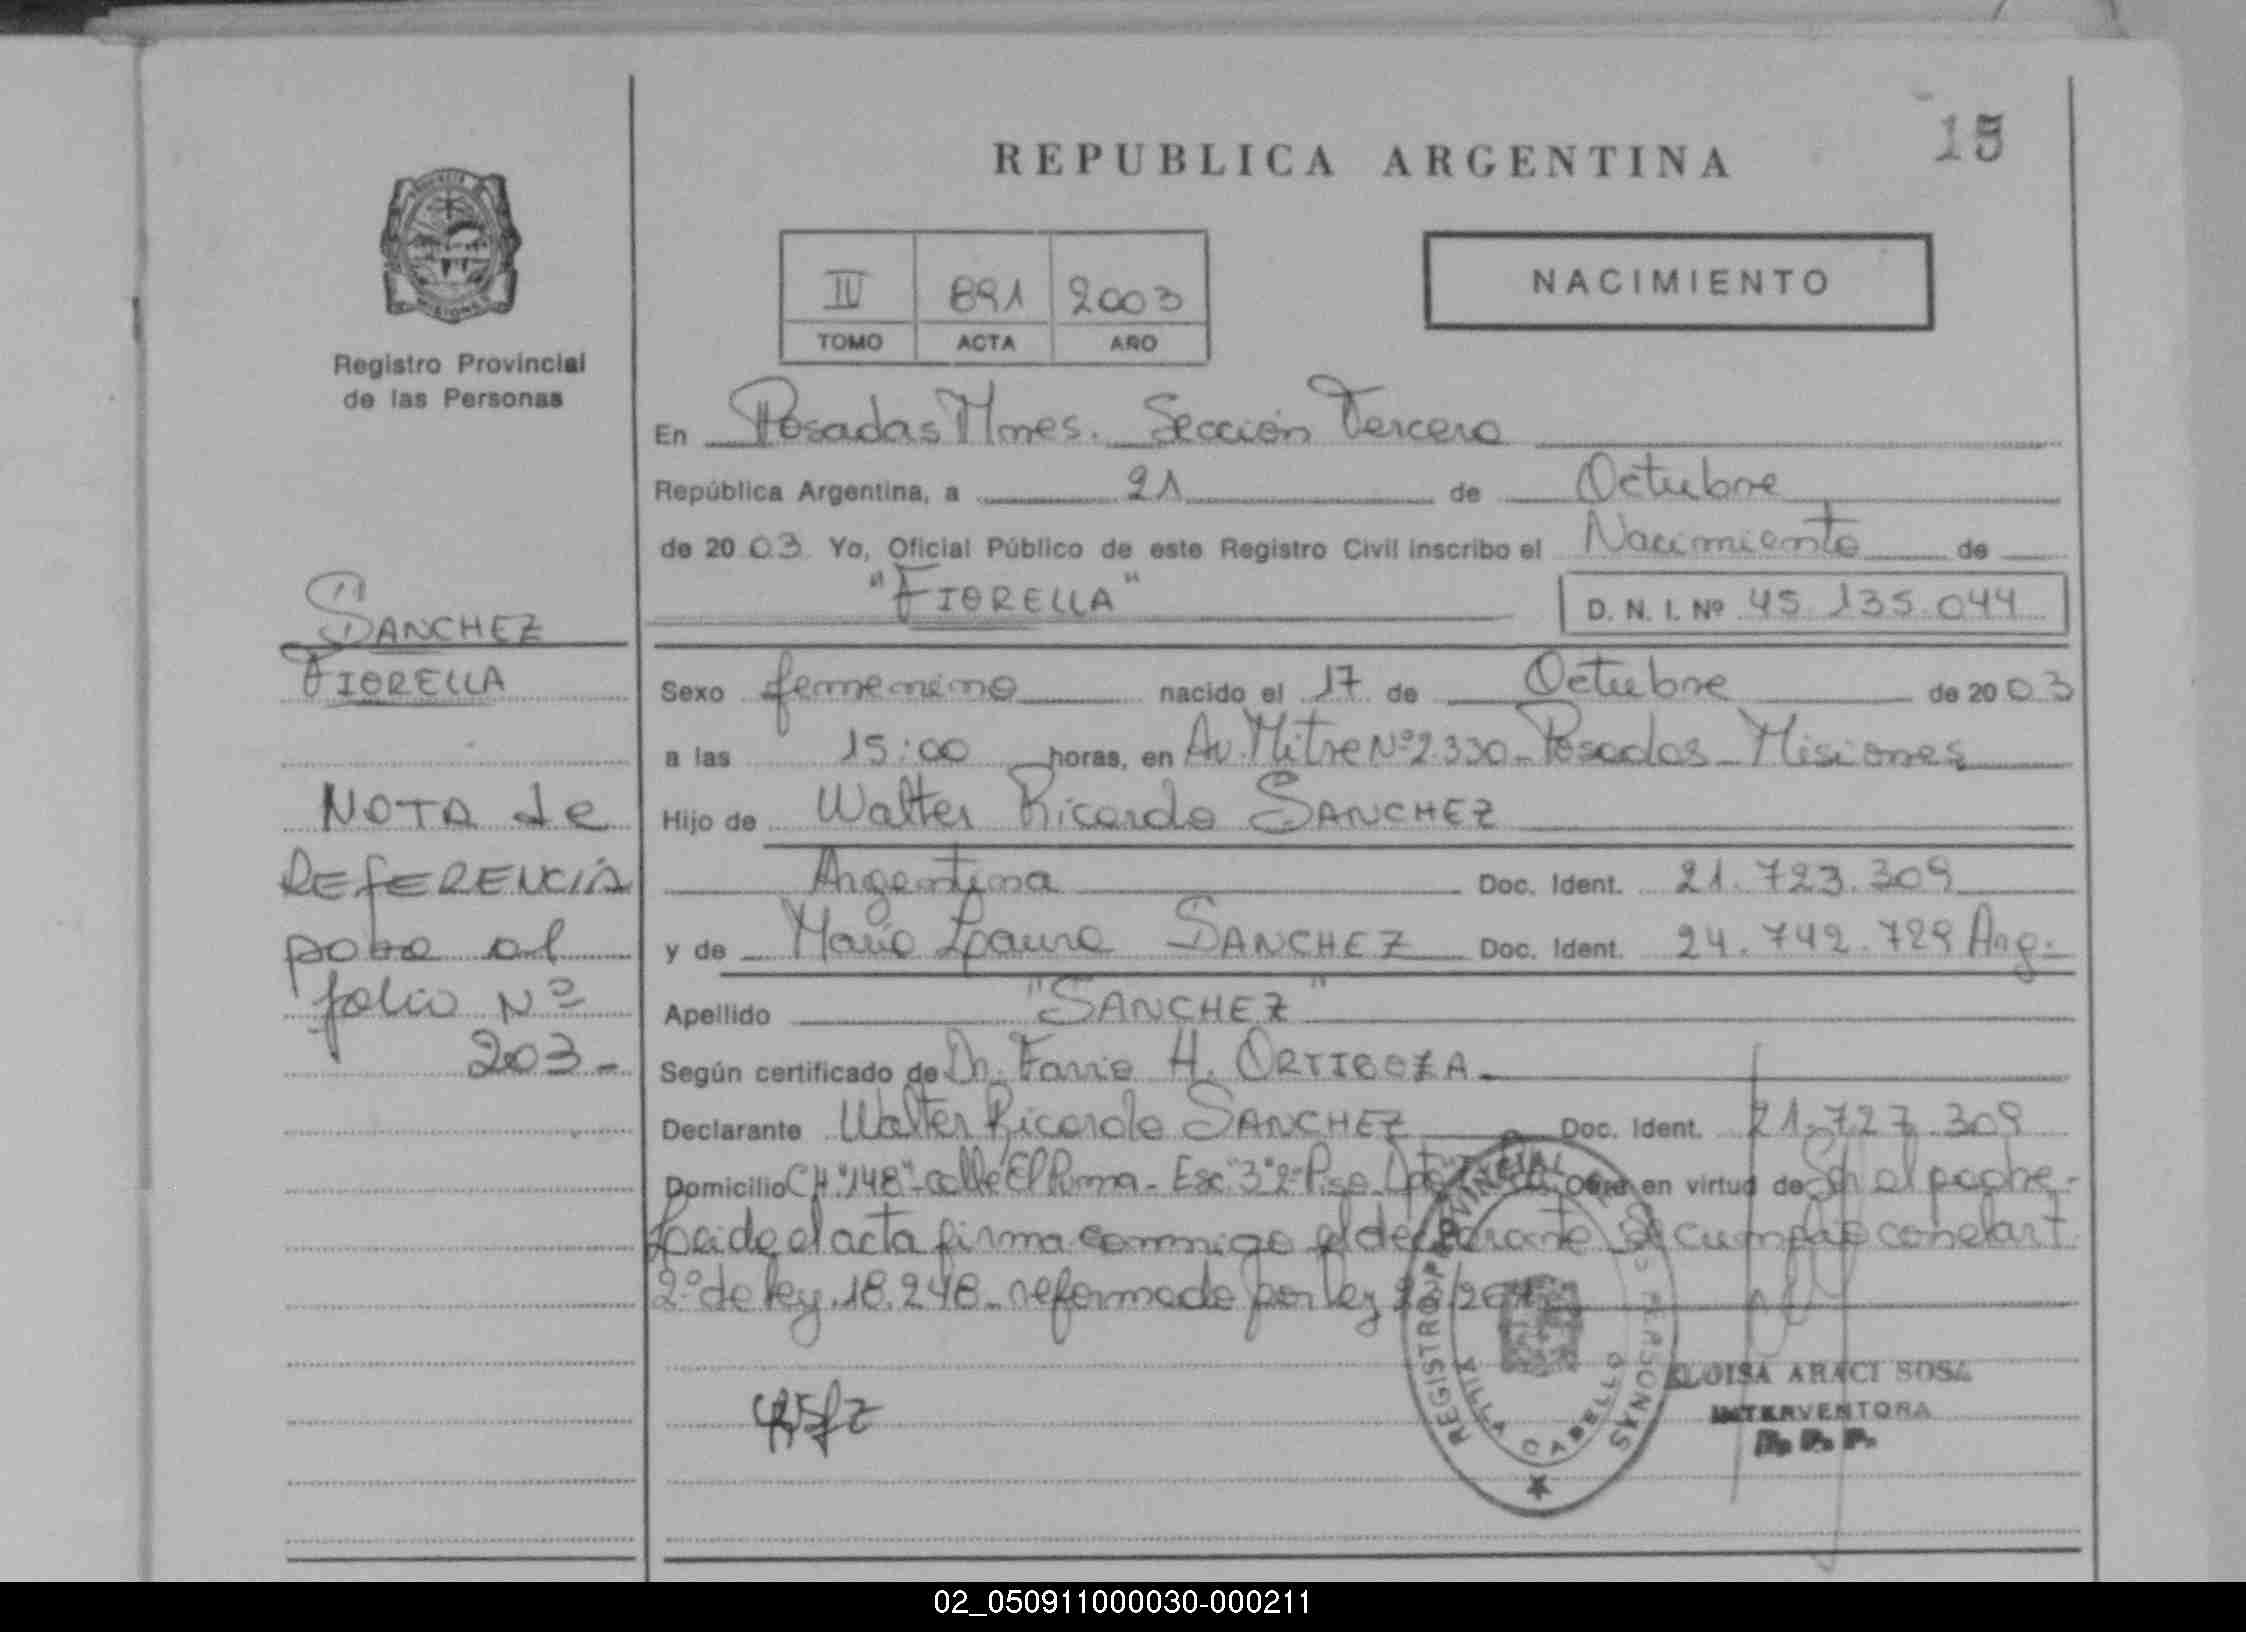 15
REPUBLICA ARGENTINA
NACIMIENTO
IV 891 2003
TOMO ACTA AÑO
Registro Provincial
de las Personas
En Posadas Mnes. Sección Tercera
República Argentina, a 21 de Octubre
de 2003 Yo, Oficial Público de este Registro Civil inscribo el Nacimiento de
"FIORELLA"
D. N. I. Nº 45.135.044
SANCHEZ
FIORELLA
NOTA de
REFERENCIA
al
folio Nº
203-
Sexo femenino nacido el 17 de Octubre de 2003
a las 15:00 horas, en Av. Mitre Nº 2.330 - Posadas - Misiones
Hijo de Walter Ricardo SANCHEZ
Argentina Doc. Ident. 21.723.309
y de María Laura SANCHEZ Doc. Ident. 24.742.729 Arg.
Apellido "SANCHEZ"
Según certificado de Dr. H. ORTIGOZA
Declarante Walter Ricardo SANCHEZ Doc. Ident. 21.727.309
Domicilio CH "148" - calle El Puma - Esc. "3" 2º Piso Dpto Obra en virtud de el padre -
Leida el acta firma conmigo el declarante Se cumplio con el art
2º de ley 18.248 - reformada por ley
REGISTRO PROVINCIAL DE LAS PERSONAS
VILLA CABELLO
ELOISA ARACI SOSA
INTERVENTORA
R. P. P.
02_050911000030-000211